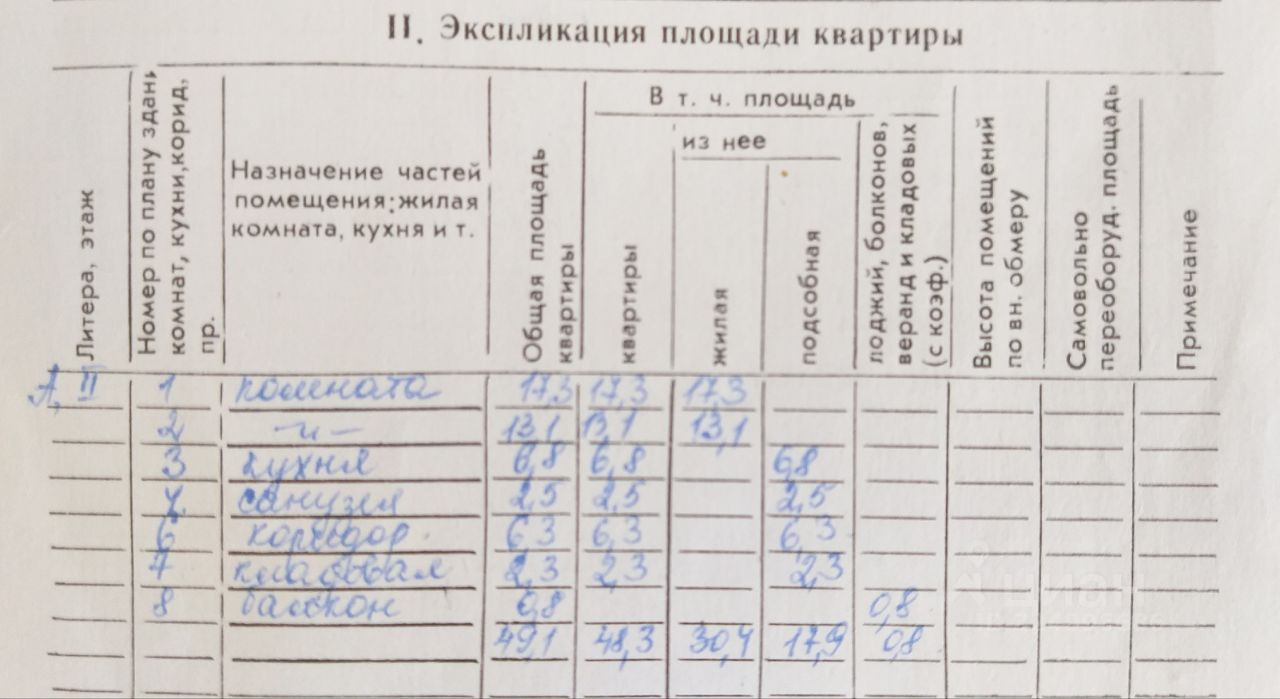 II. Экспликация площади квартиры
Литера, этаж
Номер по плану здани
комнат, кухни, корид,
пр.
Назначение частей
помещения: жилая
комната, кухня и т.
Общая площадь
квартиры
В т. ч. площадь
квартиры
из нее
жилая
подсобная
лоджий, болконов,
веранд и кладовых
(с коэф.)
Высота помещений
по вн. обмеру
Самовольно
переоборуд. площадь
Примечание
А, II 1 комната 17,3 17,3 17,3
2 –и– 13,1 13,1 13,1
3 кухня 6,8 6,8 6,8
санузел 2,5 2,5 2,5
6 коридор 6,3 6,3 6,3
7 кладовая 2,3 2,3 2,3
8 балкон 0,8 0,8
49,1 48,3 30,4 17,9 0,8
циан